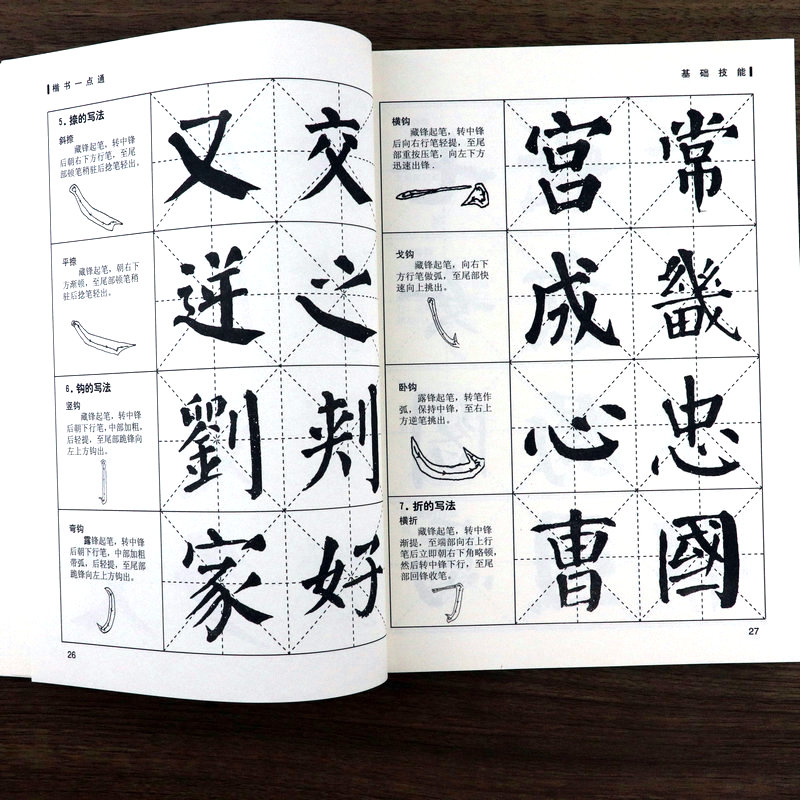 楷书一点通
5．捺的写法
斜捺
藏锋起笔，转中锋
后朝右下方行笔，至尾
部顿笔稍驻后捻笔轻出。
又 交
平捺
藏锋起笔，朝右下
方渐顿，至尾部顿笔稍
驻后捻笔轻出。
之
6．钩的写法
竖钩
藏锋起笔，转中锋
后朝下行笔，中部加粗，
后轻提，至尾部跪锋向
左上方钩出。
劉
弯钩
露锋起笔，转中锋
后朝下行笔，中部加粗
带弧，后轻提，至尾部
跪锋向左上方钩出。
家 好
26
基础技能
横钩
藏锋起笔，转中锋
后向右行笔轻提，至尾
部重按压笔，向左下方
迅速出锋．
宫 常
戈钩
藏锋起笔，向右下
方行笔做弧，至尾部快
速向上挑出。
成 畿
卧钩
露锋起笔，转笔作
弧，保持中锋，至右上
方逆笔挑出。
心 忠
7．折的写法
横折
藏锋起笔，转中锋
渐提，至端部向右上行
笔后立即朝右下角略顿，
然后转中锋下行，至尾
部回锋收笔。
曹 國
27